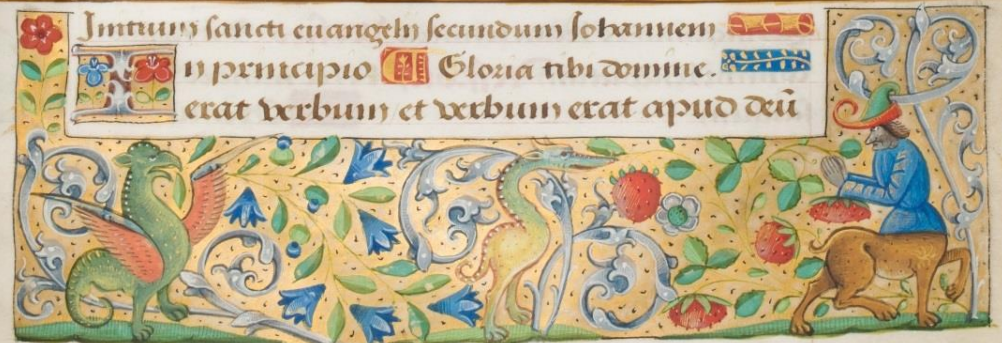 Initium sancti euangelii secundum Iohannem
In principio Gloria tibi domine.
erat verbum et verbum erat apud deū